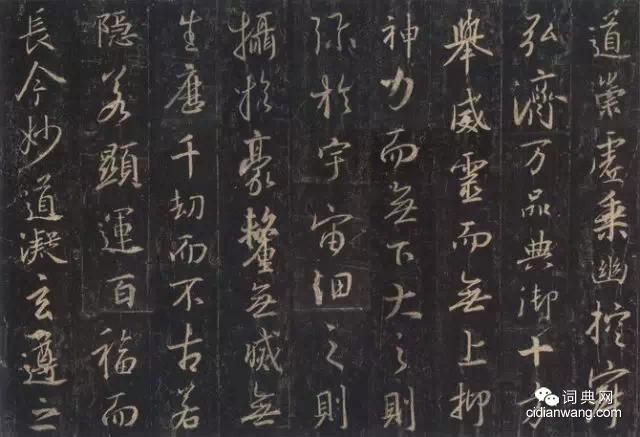 道崇虛乘幽控寂
弘濟万品典御十方
舉威靈而無上抑
神力而無下大之則
彌於宇宙細之則
攝於豪釐無滅無
生歷千劫而不古若
隱若顯運百福而
長今妙道凝玄遵之
词典网
cidianwang.com